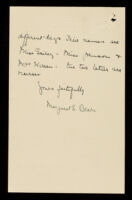 different days. Their names are
Miss Tansley - Miss Johnson &
Mrs Wilson - the two latter are
nurses
Yours faithfully
Margaret S. Deas